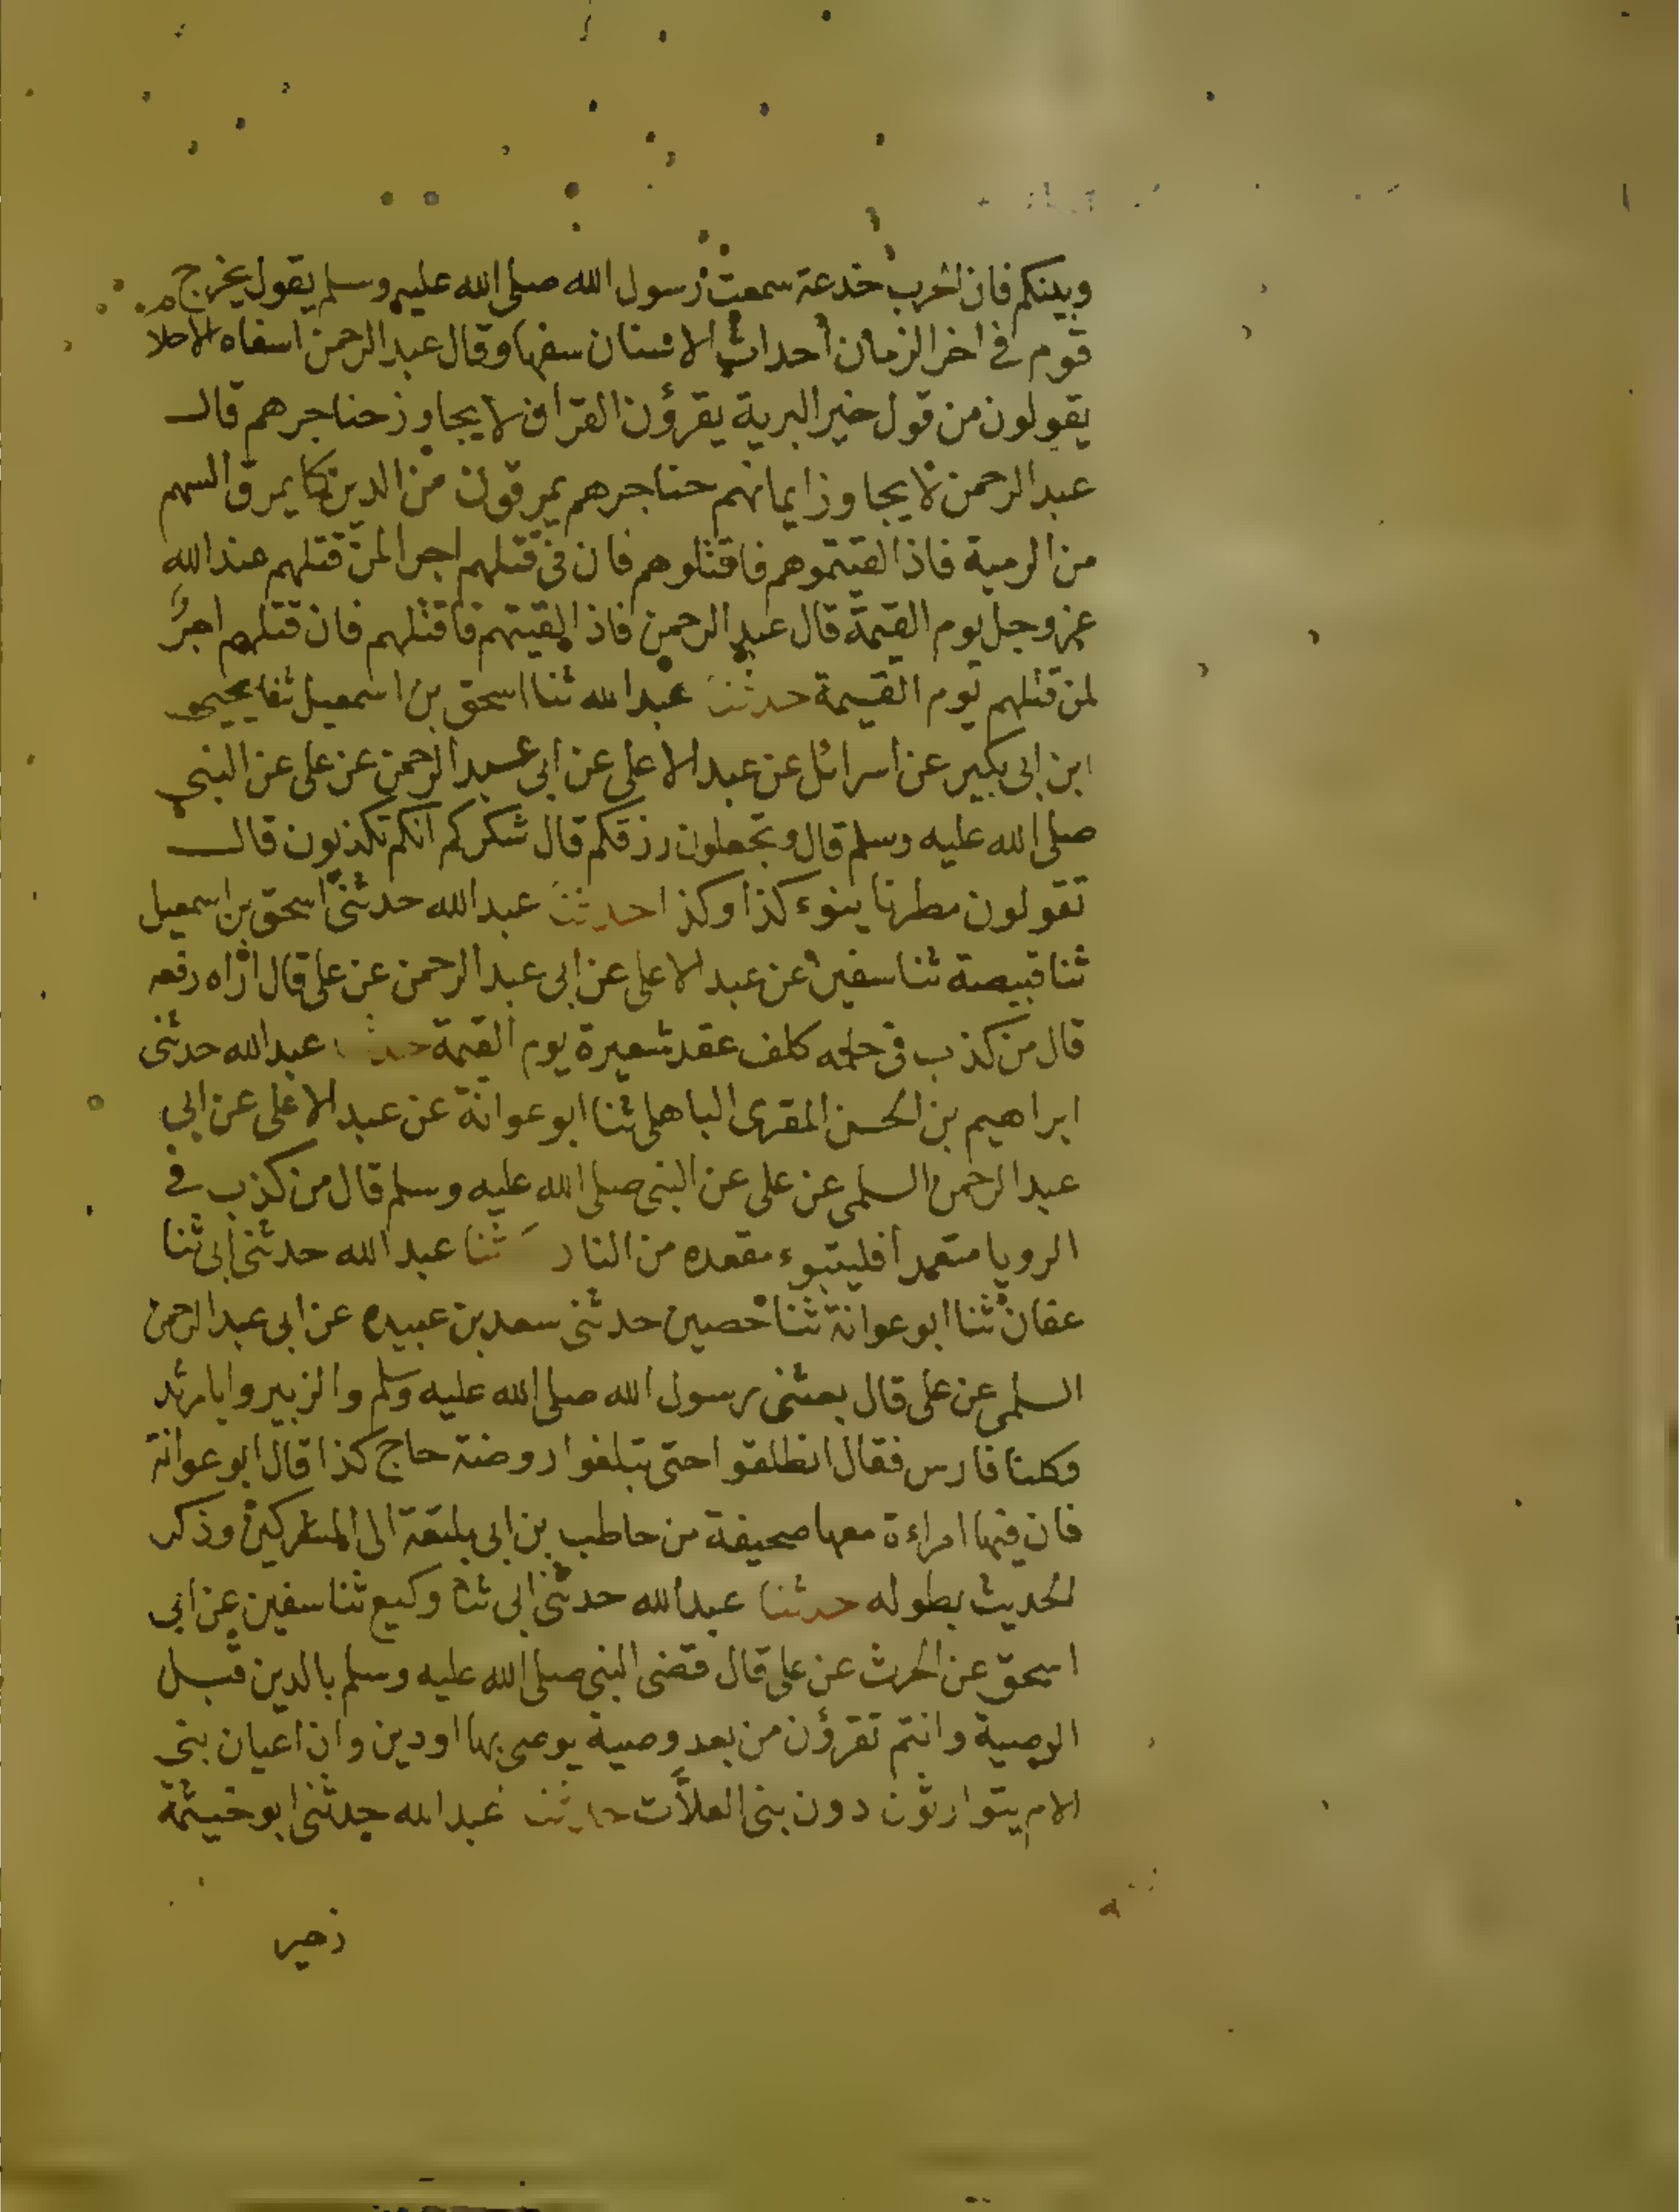 وبينكم فان الحرب خدعة سمعت رسول الله صلى الله عليه وسلم يقول يخرج
قوم في اخر الزمان احداث الاسنان سفها وقال عبد الرحمن اسفاه الاحلام
يقولون من قول خير البرية يقرؤن القران لا يجاوز حناجرهم قال
عبد الرحمن لا يجاوز ايمانهم حناجرهم يمرقون من الدين كما يمرق السهم
من الرمية فاذا لقيتموهم فاقتلوهم فان في قتلهم اجرا لمن قتلهم عند الله
عز وجل يوم القيمة قال عبد الرحمن فاذا لقيتهم فاقتلهم فان قتلهم اجرٌ
لمن قتلهم يوم القيمة حدثنا عبد الله ثنا اسحق بن اسمعيل ثنا يحيى
ابن ابى بكير عن اسرائل عن عبد الاعلى عن ابى عبد الرحمن عن على عن النبى
صلى الله عليه وسلم قال وتجعلون رزقكم قال شكركم انكم تكذبون قال
تقولون مطرنا بنوء كذا وكذا حدثنا عبد الله حدثنى اسحق بن اسمعيل
ثنا قبيصة ثنا سفين عن عبد الاعلى عن ابى عبد الرحمن عن على قال اراه رفعه
قال من كذب في حلمه كلف عقد شعيرة يوم القيمة عبد الله حدثنى
ابراهيم بن الحسن المقرى الباهلى ثنا ابو عوانة عن عبد الاعلى عن ابي
عبد الرحمن السلمى عن على عن النبى صلى الله عليه وسلم قال من كذب في
الرويا متعمدا فليتبوء مقعده من النار ثنا عبد الله حدثنى ابى ثنا
عفان ثنا ابو عوانة ثنا حصين حدثنى سعد بن عبيده عن ابى عبد الرحمن
السلمى عن على قال بعثنى رسول الله صلى الله عليه وسلم والزبير وابا مرثد
وكلنا فارس فقال انطلقوا حتى تبلغوا روضة حاج كذا قال ابو عوانة
فان فيها امراءة معها صحيفة من حاطب بن ابى بلتعة الى المشركين وذكر
الحديث بطوله حدثنا عبد الله حدثنى ابى ثنا وكيع ثنا سفين عن ابى
اسحق عن الحرث عن على قال قضى النبى صلى الله عليه وسلم بالدين قبل
الوصية وانتم تقرؤن من بعد وصية يوصى بها او دين وان اعيان بنى
الام يتوارثون دون بنى العلاَّت حدثنا عبد الله حدثنى ابو خيثمة
زهير